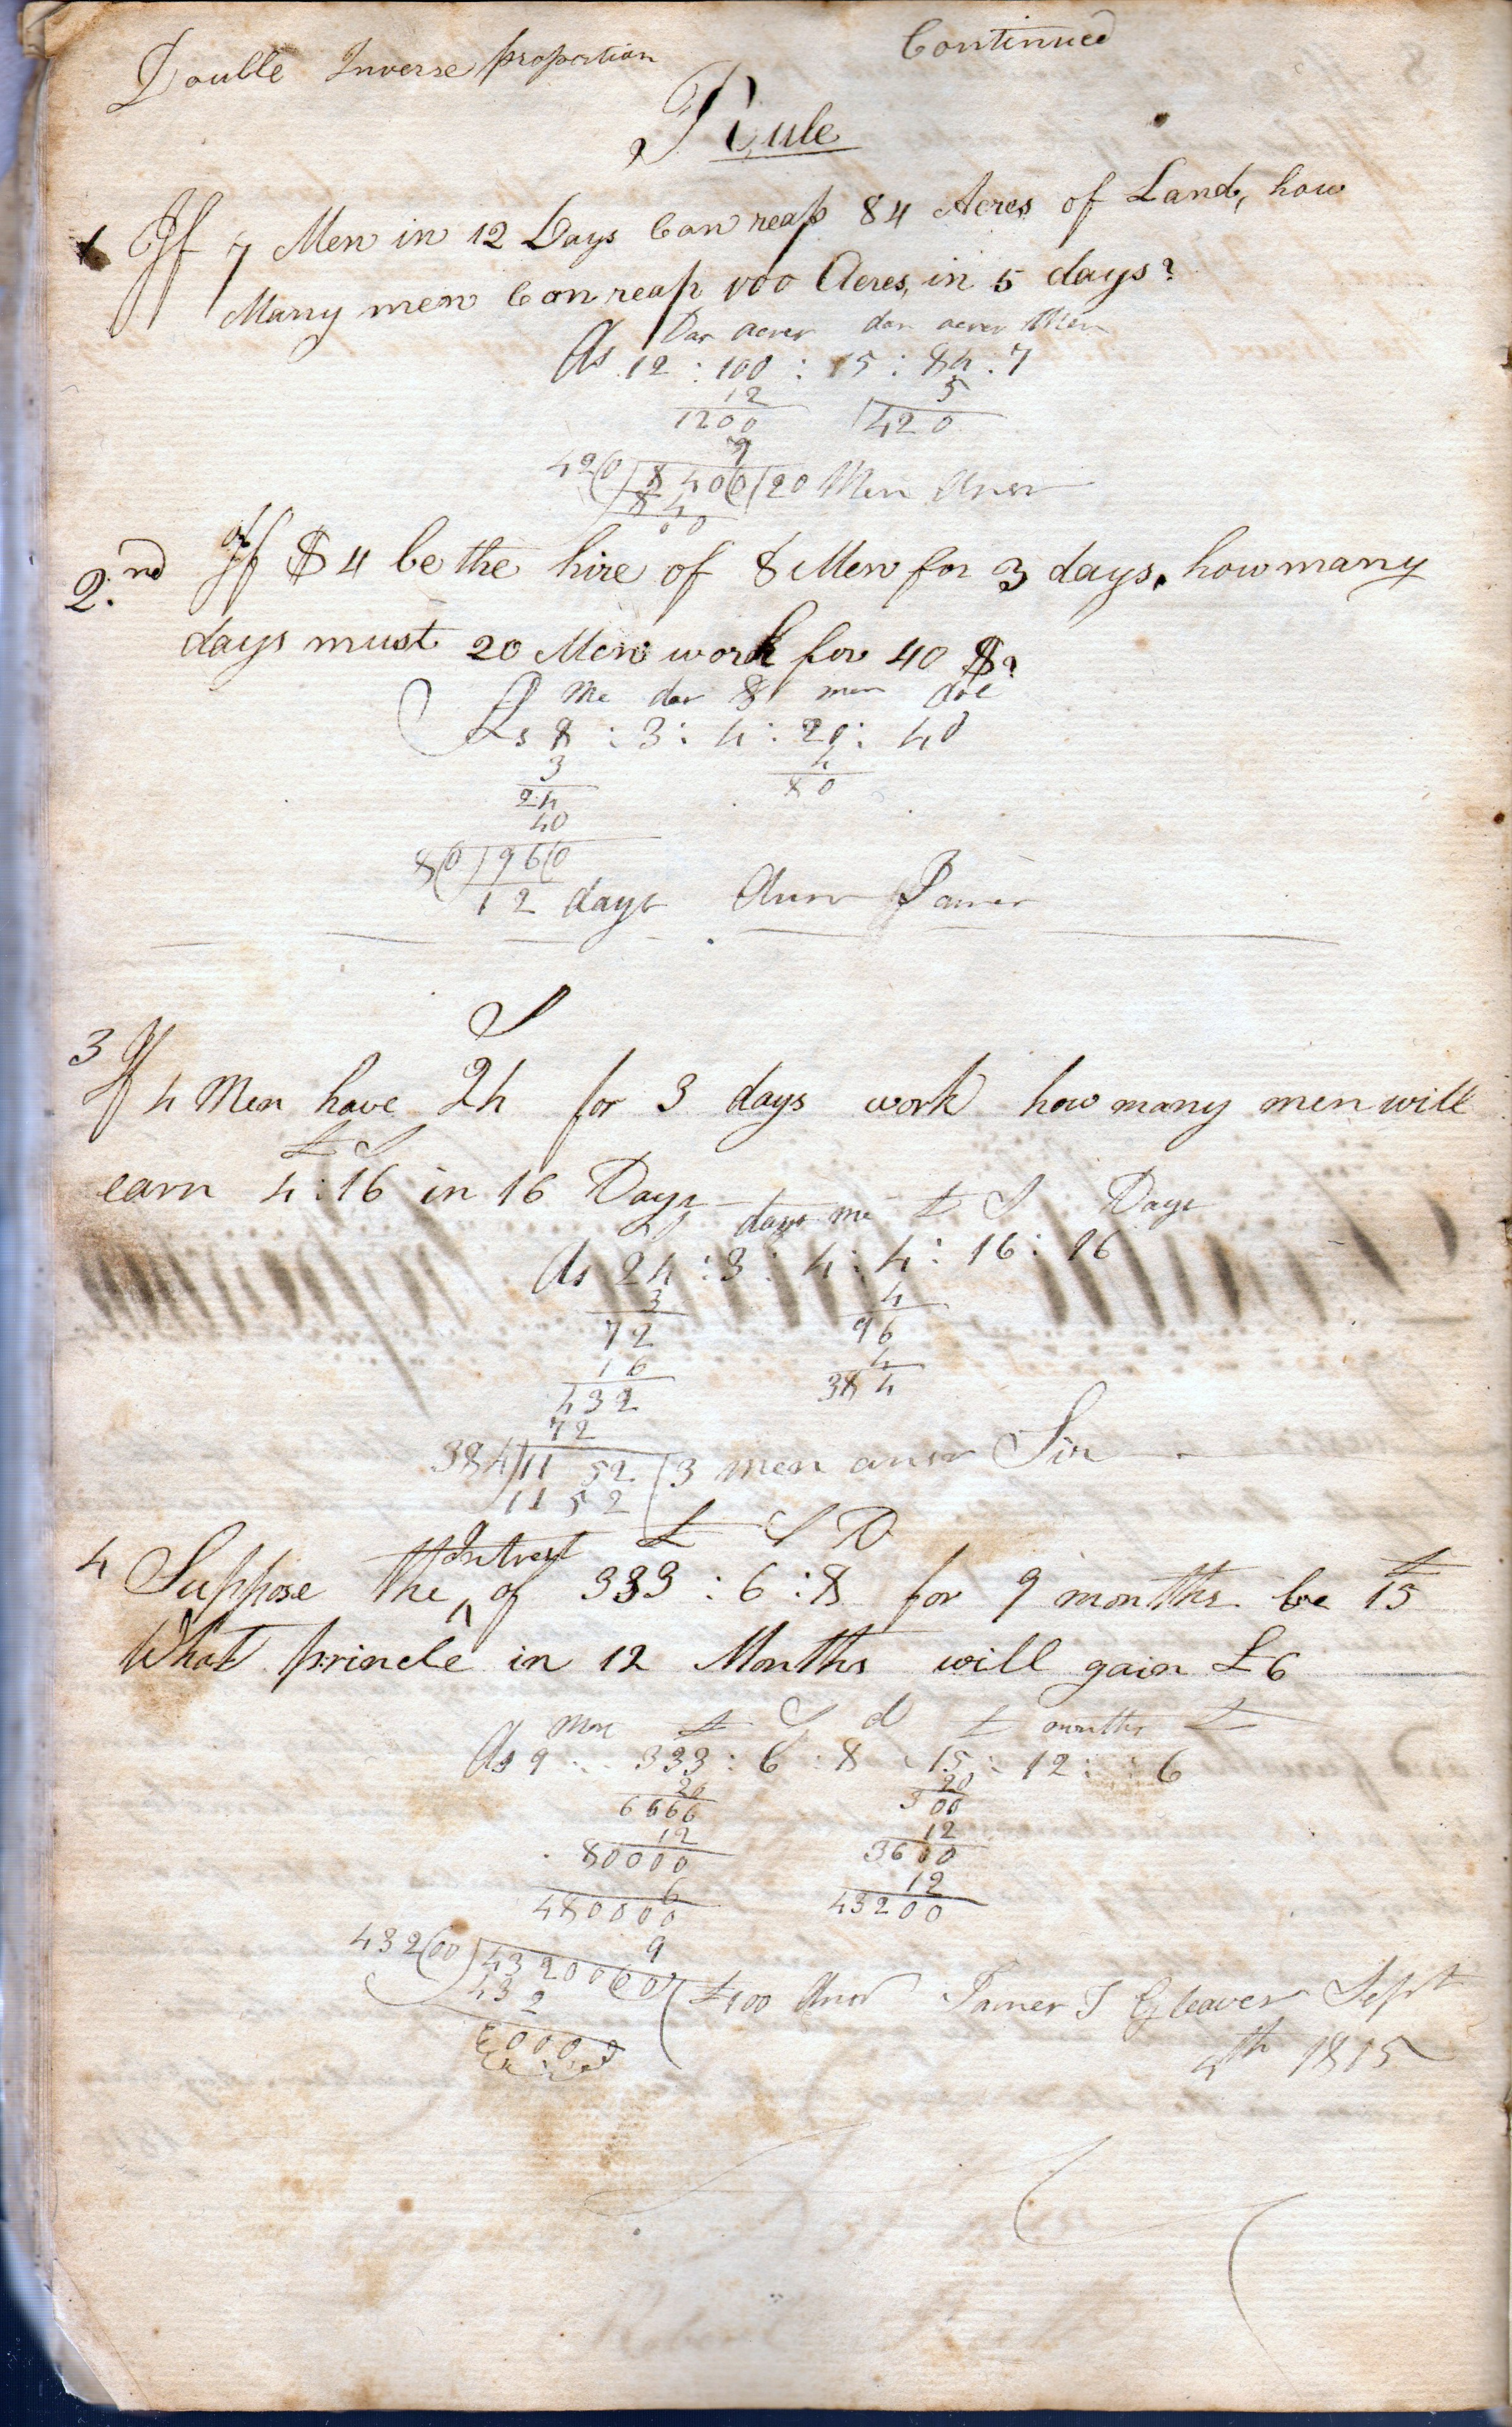 Double Inverse proportion Continued
Rule
1 If 7 Men in 12 Days Can reap 84 Acres of Land, how
Many men Can reap 100 Acres, in 5 days?
Das acres das acres Men
As 12 : 100 : 15 : 84 : 7
12 5
1200 420
7
420 8400 20 Men Answ
84
00
2nd If $4 be the hire of 8 Men for 3 days, how many
days must 20 Men work for 40 $?
Me das $ men dol
As 8 : 3 : 4 : 20 : 40
3 4
24 80
40
80 960
12 days Answ
S
3 If 4 Men have 24 for 3 days work how many men will
£ S
earn 4 : 16 in 16 Days
S days me £ S Days
As 24 : 3 : 4 : 4 : 16 : 16
3 4
72 96
16 4
432 384
72
384 1152 3 men answ Sir
1152
Intrest £ S D
4 Suppose the ^ of 333 : 6 : 8 for 9 months be £15
What princle in 12 Months will gain £6
Mon £ S d £ months £
As 9 : 333 : 6 : 8 : 15 : 12 : : 6
20 20
6666 300
12 12
80000 3600
6 12
480000 43200
9
43200 4320000 £100 Answ James T Gleaves Sept
432
0000 4th 1815